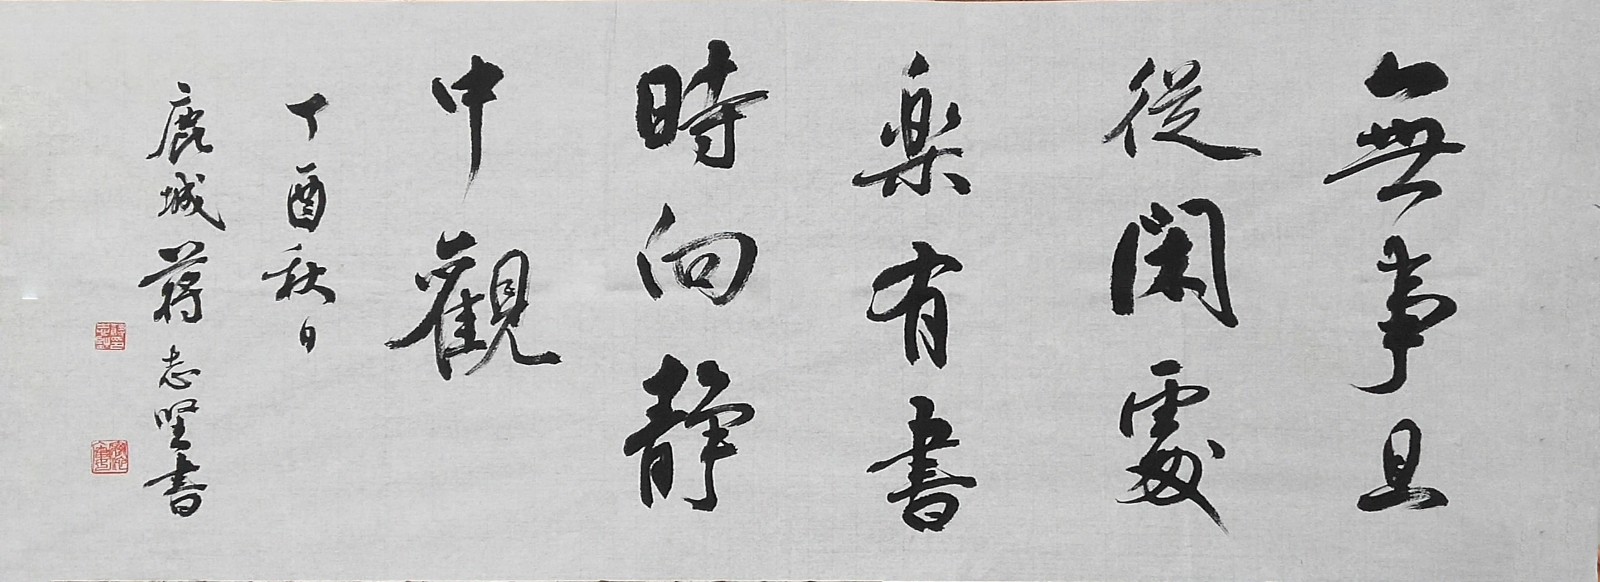 無事且
從閑處
楽有書
時向静
中觀
丁酉秋日
鹿城蒋志堅書